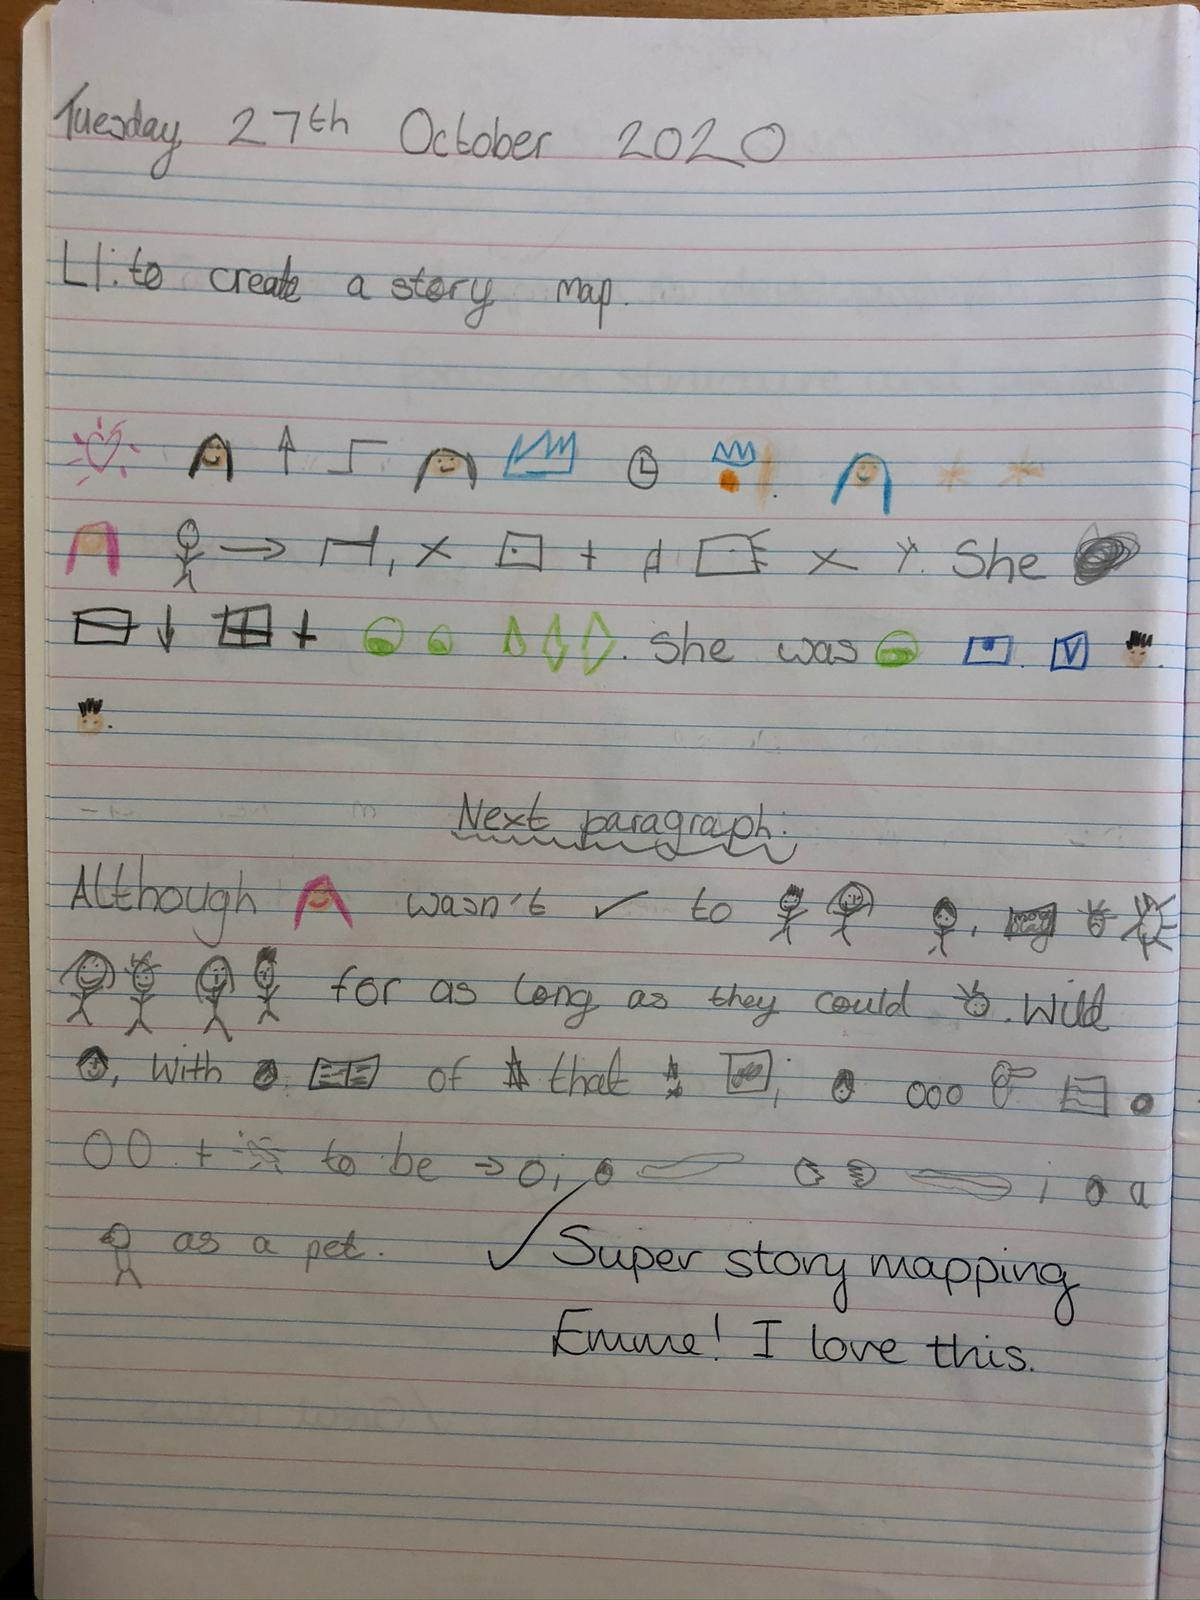 Tuesday 27th October 2020
LI: to create a story map.
She
She was
Next paragraph:
Although wasn't to
for as long as they could . Wild
, with of that
+ to be
a
as a pet.
Super story mapping
Emme! I love this.